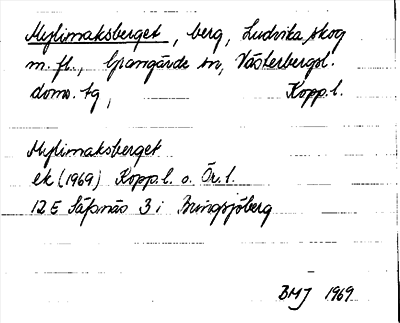 Myllimaksberget, berg, Ludvika skog
m. fl., Grangärde sn, Västerbergsl.
doms. tg, Kopp. l.
Myllimaksberget
ek (1969) Kopp. l. o. Ör. l.
12 E Säfsnäs 3 i Bringsjöberg
BMJ 1969